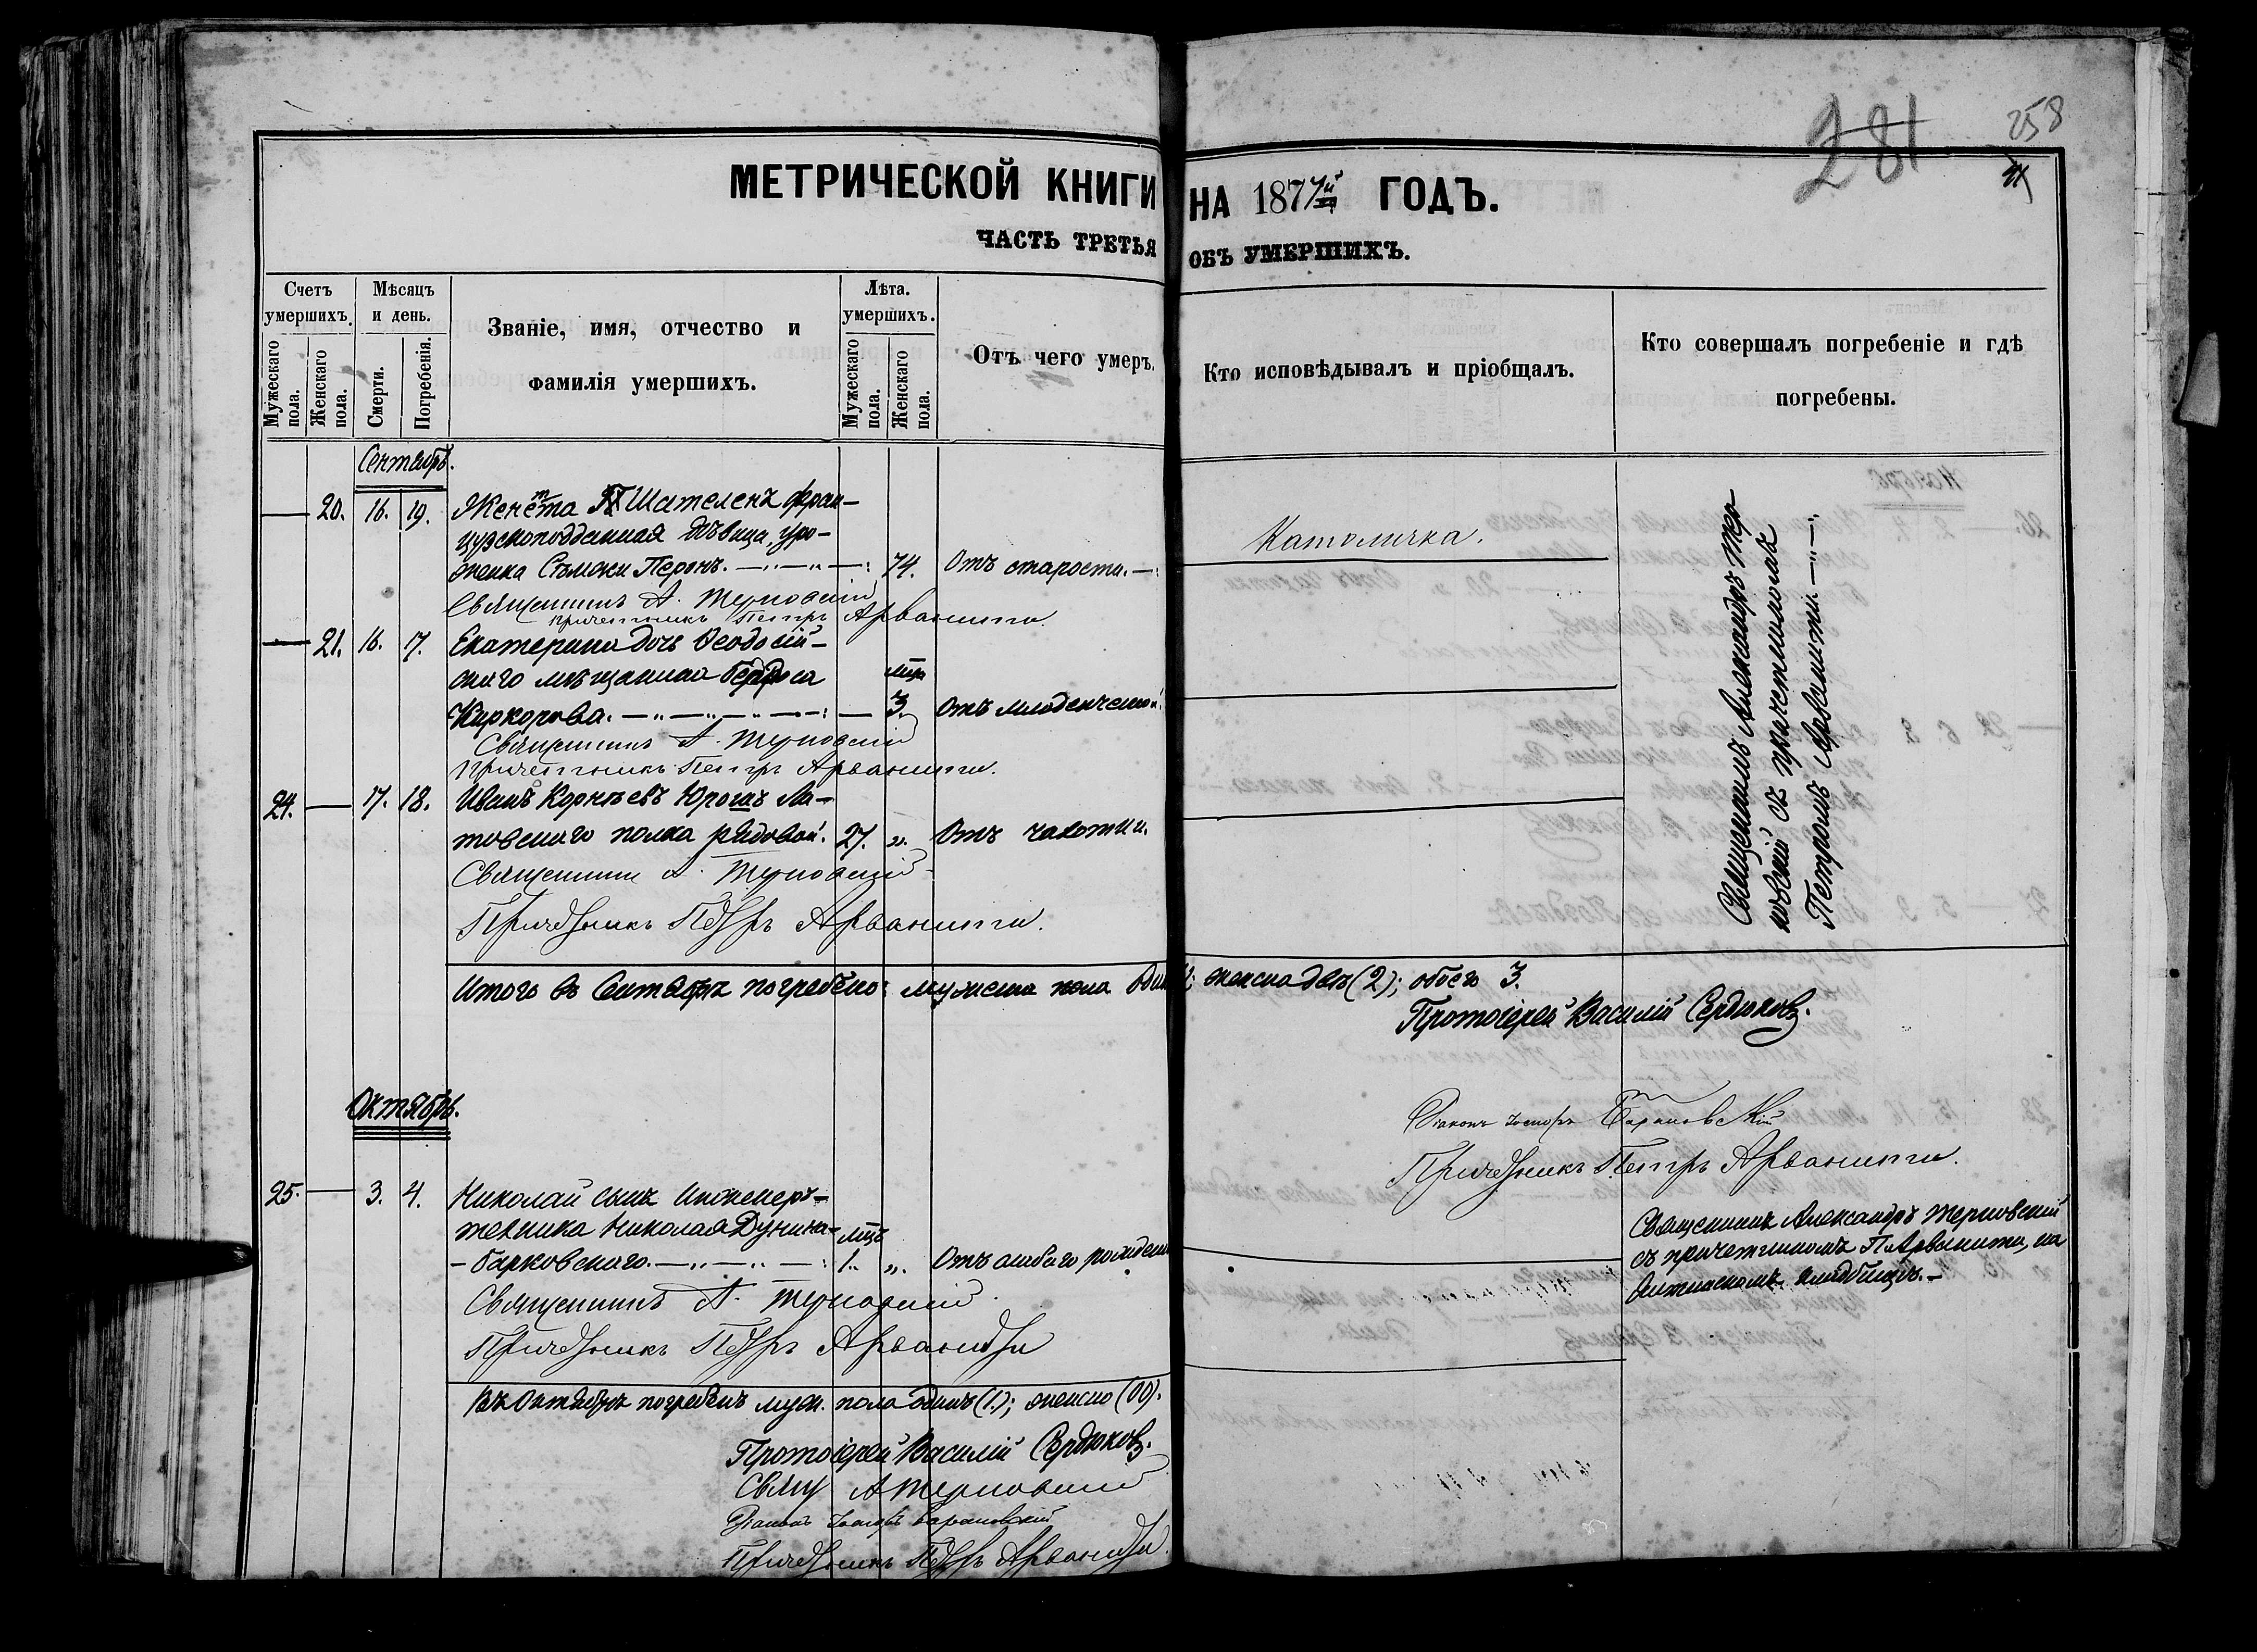 281
258
МЕТРИЧЕСКОЙ КНИГИ НА 1877й ГОДЪ.
ЧАСТЬ ТРЕТЬЯ ОБЪ УМЕРШИХЪ.
Счетъ умершихъ.
Мужескаго пола.
Женскаго пола.
Мѣсяцъ и день.
Смерти.
Погребенія.
Званіе, имя, отчество и
фамилія умершихъ.
Лѣта. умершихъ.
Мужескаго пола.
Женскаго пола.
Отъ чего умеръ.
Кто исповѣдывалъ и пріобщалъ.
Кто совершалъ погребеніе и гдѣ
погребены.
Сентябрь.
— 20. 16. 19. Женета Шателенъ фран-
цузскоподданная дѣвица, уро-
женка Перонъ. 74. Отъ старости.
Католичка.
Священникъ А. Терновскій
Причетникъ Петръ Арванити.
— 21. 16. 17. Екатерина дочь Ѳеодосій-
скаго мѣщанина
Киркорова. — мца 3. Отъ младенческой
Священникъ А. Терновскій
Причетникъ Петръ Арванити.
24. — 17. 18. Иванъ Корнѣевъ Ли-
товскаго полка рядовой. 27. „. Отъ чахотки.
Священникъ А. Терновскій
Причетникъ Петръ Арванити.
Священникъ Александръ Тер-
новскій съ причетникомъ
Петромъ Арванити.
Итого въ Сентябрѣ погребено: мужеска пола одинъ; женска двѣ (2); обоего 3.
Протоіерей Василій Сердюковъ.
Діаконъ Іосифъ Барановскій
Причетникъ Петръ Арванити.
Октябрь.
25. — 3. 4. Николай сынъ Инженеръ-
техника Николая Дунина-
-Барковскаго. мцъ 1. „. Отъ слабаго рожденія
Священникъ Александръ Терновскій
съ причетникомъ П. Арванити, на
кладбищѣ.
Священникъ А. Терновскій.
Причетникъ Петръ Арванити
Въ Октябрѣ погребенъ муж. пола одинъ (1.); женско (00).
Протоіерей Василій Сердюковъ.
Свящ А Терновскій
Діаконъ Іосифъ Барановскій
Причетникъ Петръ Арванити.